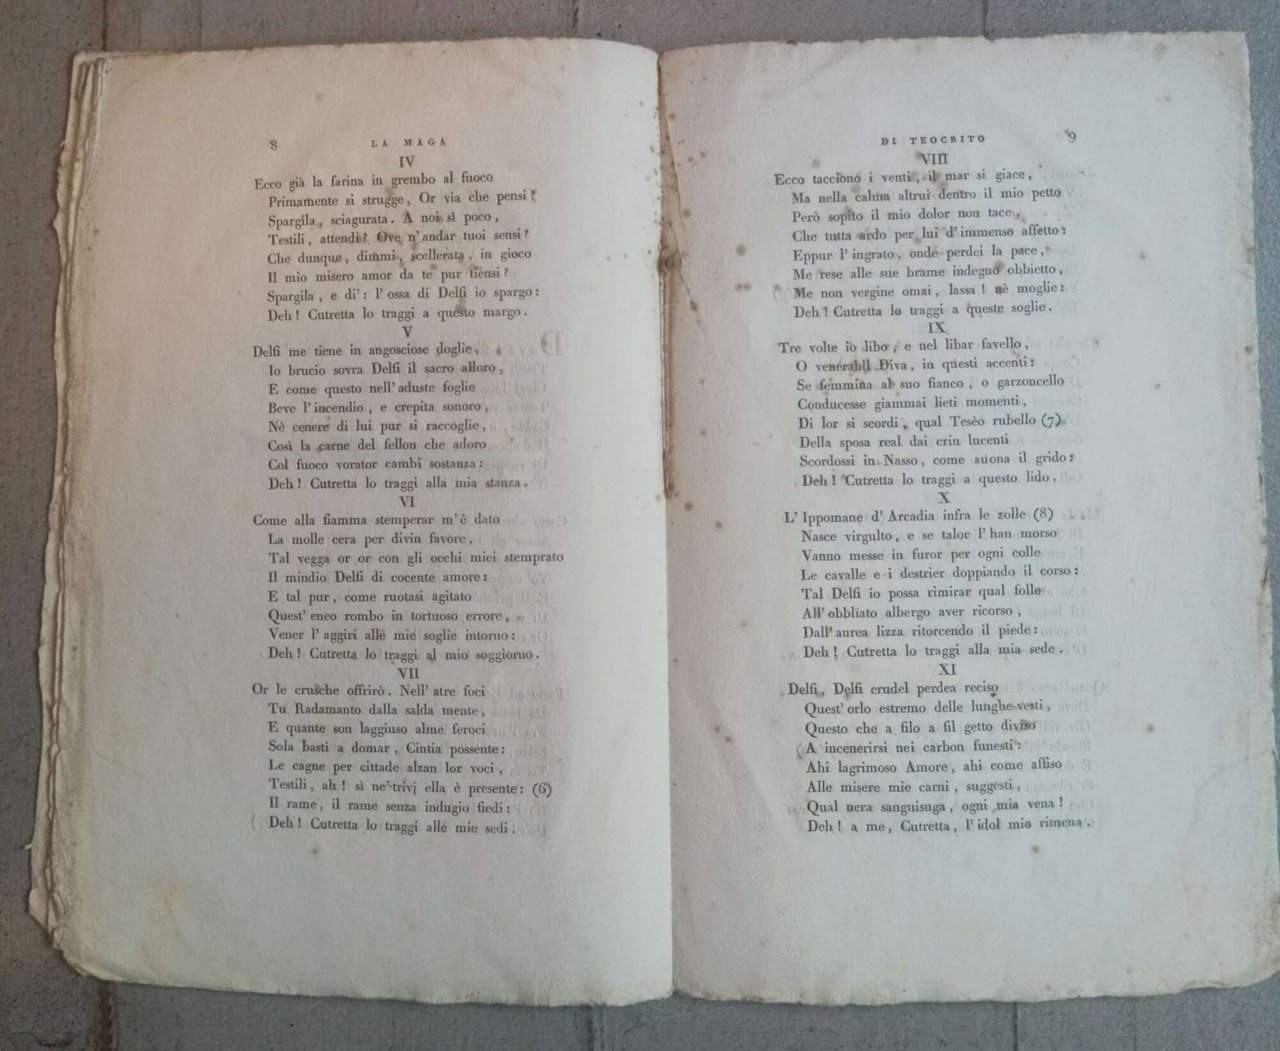 8 LA MAGA
IV
Ecco già la farina in grembo al fuoco
Primamente si strugge, Or via che pensi?
Spargila, sciagurata. A noi sì poco,
Testili, attendi? Ove n'andar tuoi sensi?
Che dunque, dimmi, scellerata, in gioco
Il mio misero amor da te pur tiensi?
Spargila, e di': l'ossa di Delfi io spargo:
Deh! Cutretta lo traggi a questo margo.
V
Delfi me tiene in angosciose doglie,
Io brucio sovra Delfi il sacro alloro,
E come questo nell'aduste foglie
Beve l'incendio, e crepita sonoro,
Nè cenere di lui pur si raccoglie,
Così la carne del fellon che adoro
Col fuoco vorator cambi sostanza:
Deh! Cutretta lo traggi alla mia stanza.
VI
Come alla fiamma stemperar m'è dato
La molle cera per divin favore,
Tal vegga or or con gli occhi miei stemprato
Il mindio Delfi di cocente amore:
E tal pur, come ruotasi agitato
Quest'eneo rombo in tortuoso errore,
Vener l'aggiri alle mie soglie intorno:
Deh! Cutretta lo traggi al mio soggiorno.
VII
Or le crusche offrirò. Nell'atre foci
Tu Radamanto dalla salda mente,
E quante son laggiuso alme feroci
Sola basti a domar, Cintia possente:
Le cagne per cittade alzan lor voci,
Testili, ah! sì ne' trivj ella è presente: (6)
Il rame, il rame senza indugio fiedi:
Deh! Cutretta lo traggi alle mie sedi.
DI TEOCRITO 9
VIII
Ecco tacciono i venti, il mar si giace,
Ma nella calma altrui dentro il mio petto
Però sopito il mio dolor non tace,
Che tutta ardo per lui d'immenso affetto:
Eppur l'ingrato, onde perdei la pace,
Me rese alle sue brame indegno obbietto,
Me non vergine omai, lassa! nè moglie:
Deh! Cutretta lo traggi a queste soglie.
IX
Tre volte io libo, e nel libar favello,
O venerabil Diva, in questi accenti:
Se femmina al suo fianco, o garzoncello
Conducesse giammai lieti momenti,
Di lor si scordi, qual Tesèo rubello (7)
Della sposa real dai crin lucenti
Scordossi in Nasso, come suona il grido:
Deh! Cutretta lo traggi a questo lido.
X
L'Ippomane d'Arcadia infra le zolle (8)
Nasce virgulto, e se talor l'han morso
Vanno messe in furor per ogni colle
Le cavalle e i destrier doppiando il corso:
Tal Delfi io possa rimirar qual folle
All'obbliato albergo aver ricorso,
Dall'aurea lizza ritorcendo il piede:
Deh! Cutretta lo traggi alla mia sede.
XI
Delfi, Delfi crudel perdea reciso
Quest'orlo estremo delle lunghe vesti,
Questo che a filo a fil getto diviso
A incenerirsi nei carbon funesti:
Ahi lagrimoso Amore, ahi come affiso
Alle misere mie carni, suggesti,
Qual nera sanguisuga, ogni mia vena!
Deh! a me, Cutretta, l'idol mio rimena.